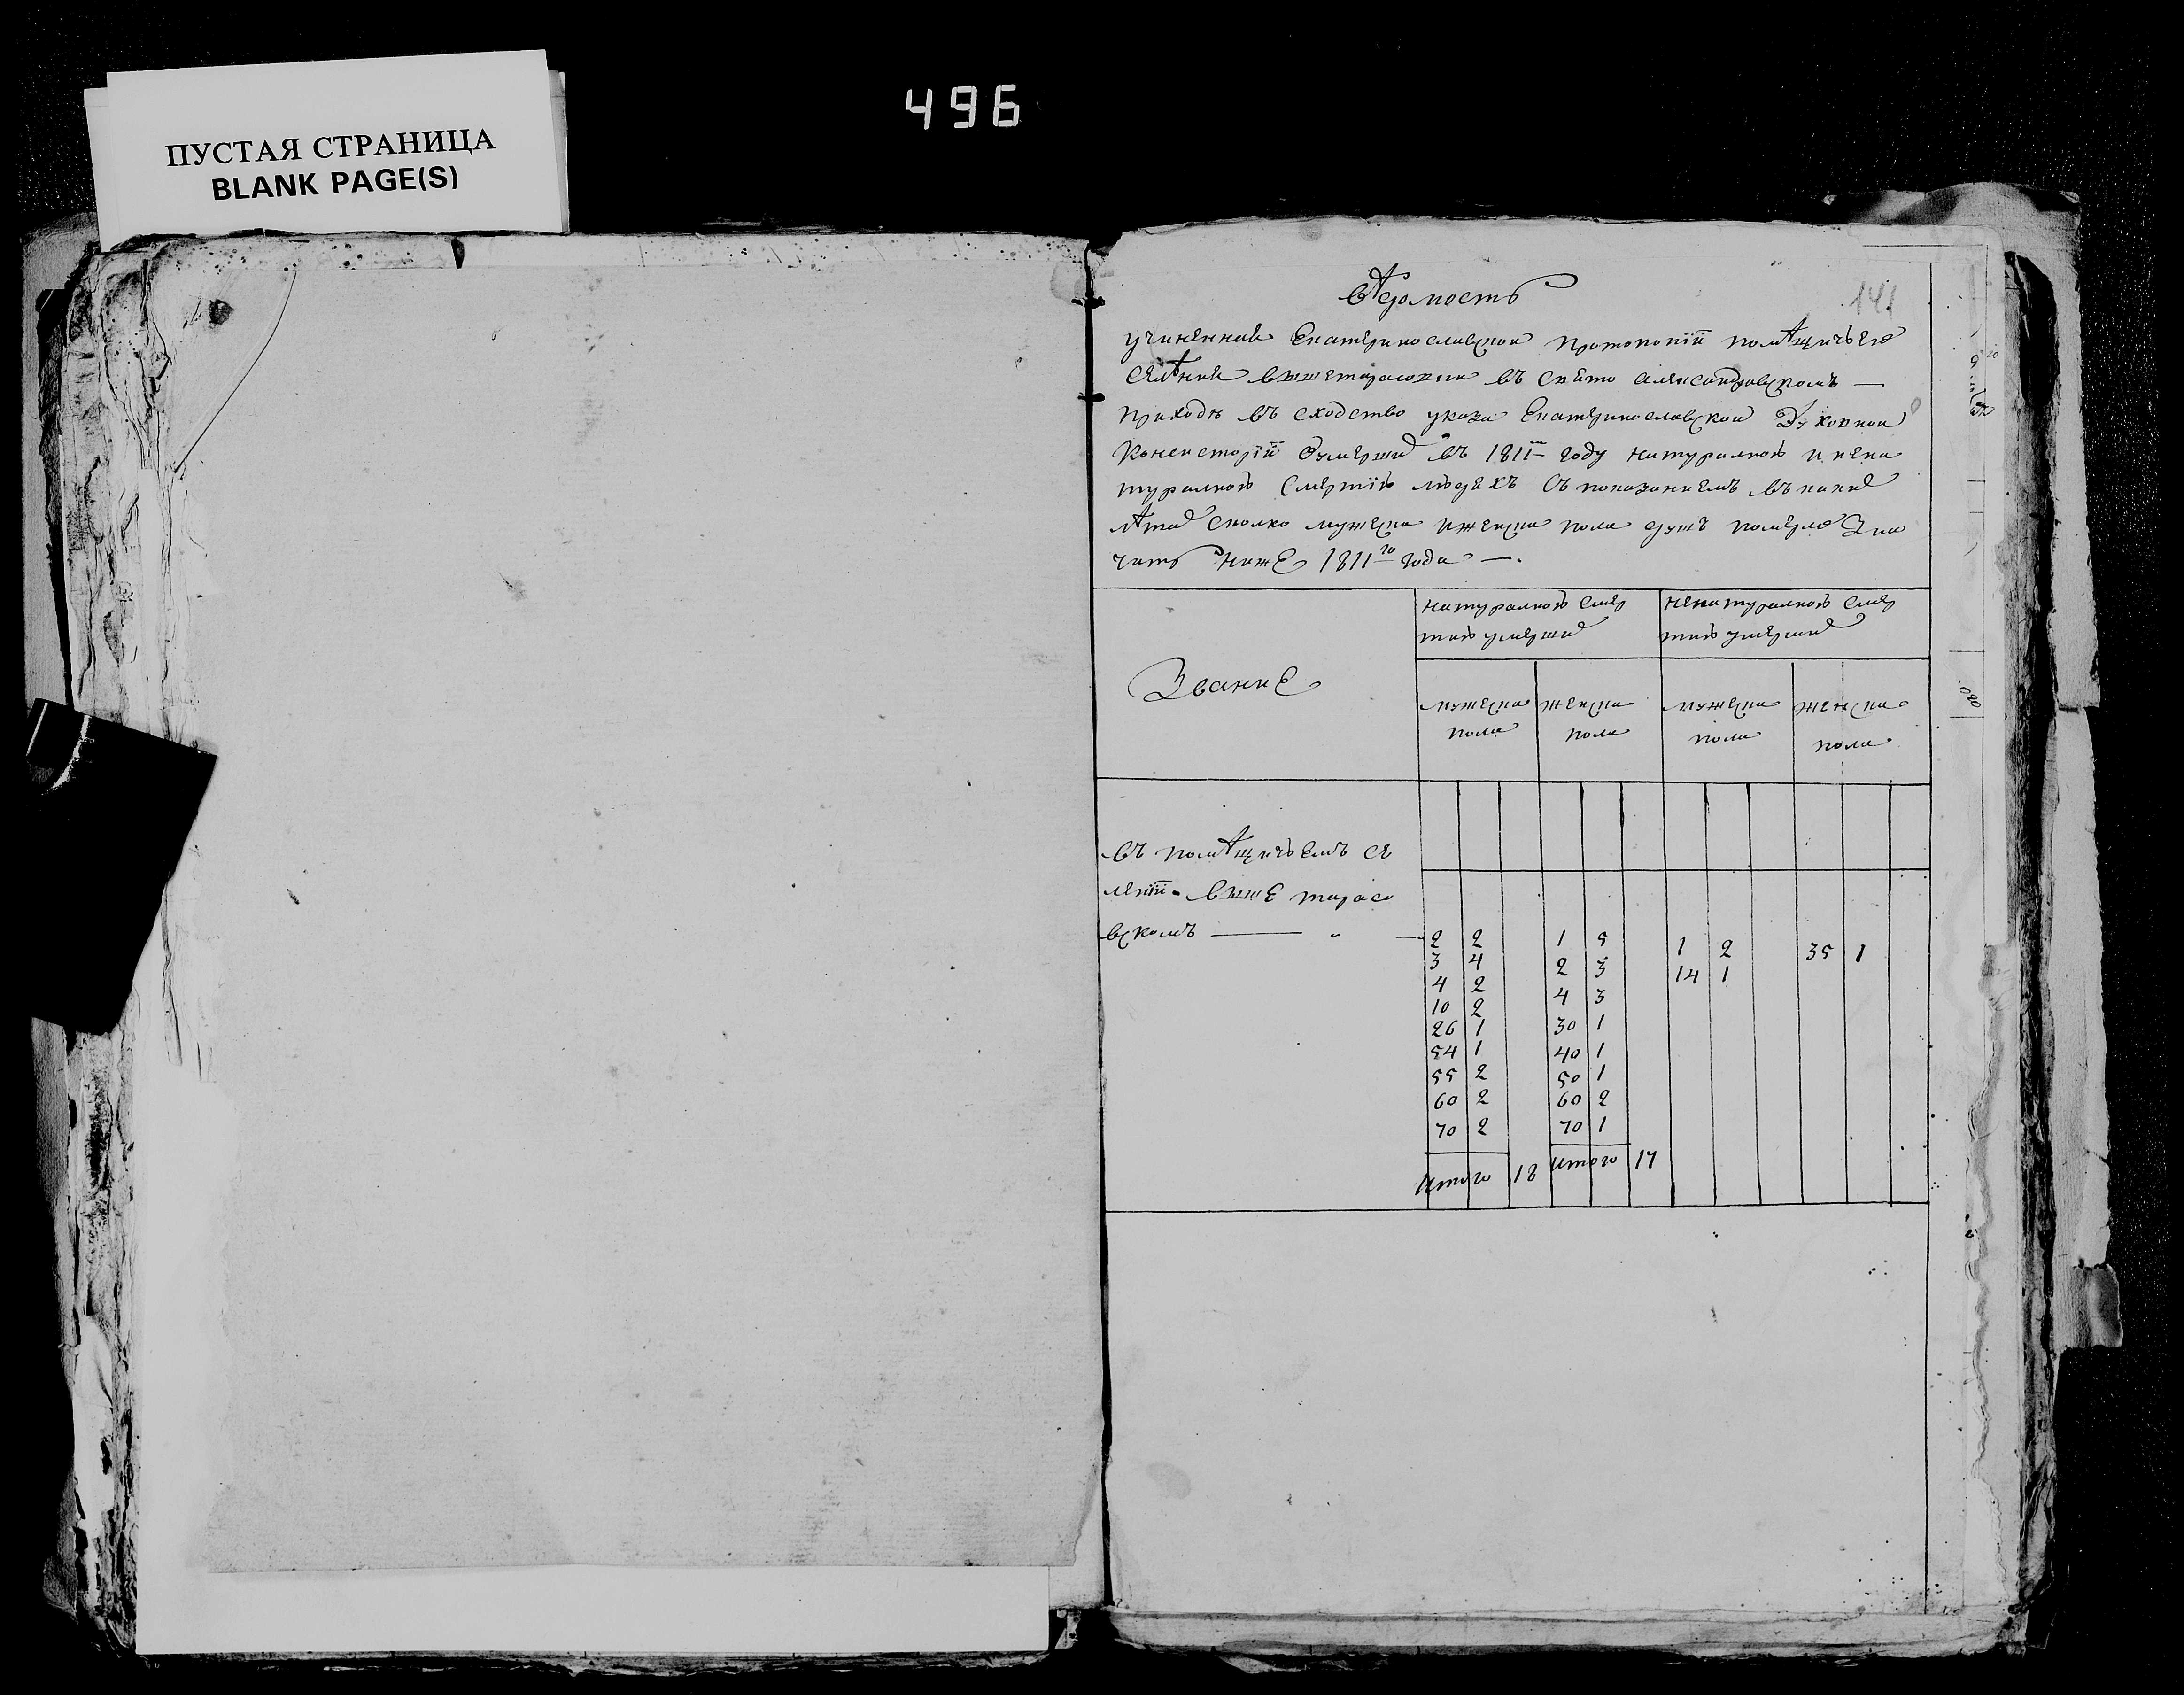 496
ПУСТАЯ СТРАНИЦА
BLANK PAGE(S)
141
вѣдомость
учиненная Екатеринославской протопопіи помѣщичьего
селѣния вышетарасовки въ Свято александровскомъ —
приходѣ въ сходство указа Екатеринославской Духовной
Консисторіи оумерших въ 1811м году натуралною и нена
туралною смертию людехъ съ показаниемъ въ каких
лѣтах сколко мужеска и женска пола душъ померло Зна
читъ ниже 1811го года —.
Звание
натуралною смер
тию умерших
ненатуралною смер
тию умерших
мужеска пола
женска пола
мужеска пола
женска пола
въ помѣщичьемъ се
леніи выше тарасо
вскомъ — " —
2 2 1 5 1 2 35 1
3 4 2 3 14 1
4 2 4 3
10 2
26 1 30 1
54 1 40 1
55 2 50 1
60 2 60 2
70 2 70 1
Итого 18 Итого 17